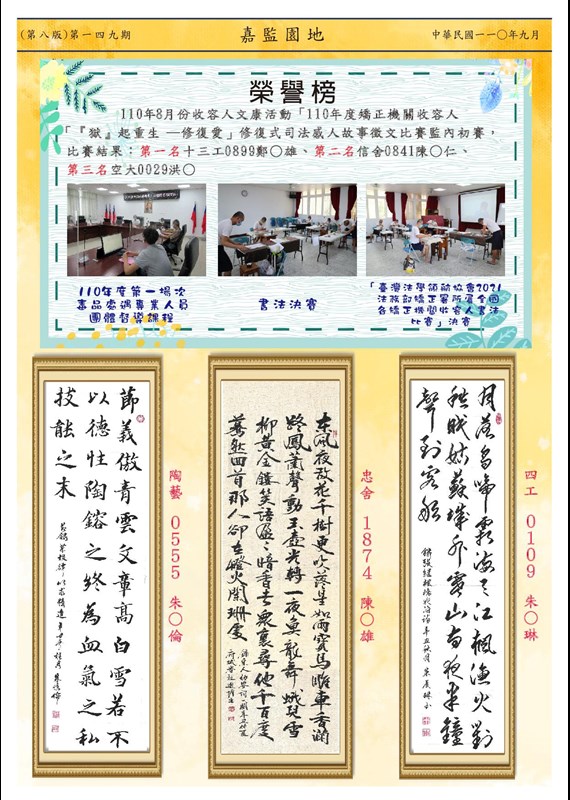 (第八版)第一四九期
嘉監園地
中華民國一一〇年九月
榮譽榜
110年8月份收容人文康活動「110年度矯正機關收容人
「『獄』起重生 —修復愛」修復式司法感人故事徵文比賽監內初賽，
比賽結果：第一名十三工0899鄭〇雄、第二名信舍0841陳〇仁、
第三名空大0029洪〇
110年度第一場次
毒品處遇專業人員
團體督導課程
書法決賽
「臺灣法學領航協會2021
法務部矯正署所屬全國
各矯正機關收容人書法
比賽」決賽
四工 0109 朱〇琳
月落烏啼霜滿天江楓漁火對
愁眠姑蘇城外寒山寺夜半鐘
聲到客船
忠舍 1874 陳〇雄
東風夜放花千樹更吹落星如雨寶馬雕車香滿
路鳳簫聲動玉壺光轉一夜魚龍舞蛾兒雪
柳黃金縷笑語盈盈暗香去眾裏尋他千百度
驀然回首那人卻在燈火闌珊處
陶藝 0555 朱〇倫
節義傲青雲文章高白雪若不
以德性陶鎔之終為血氣之私
技能之末